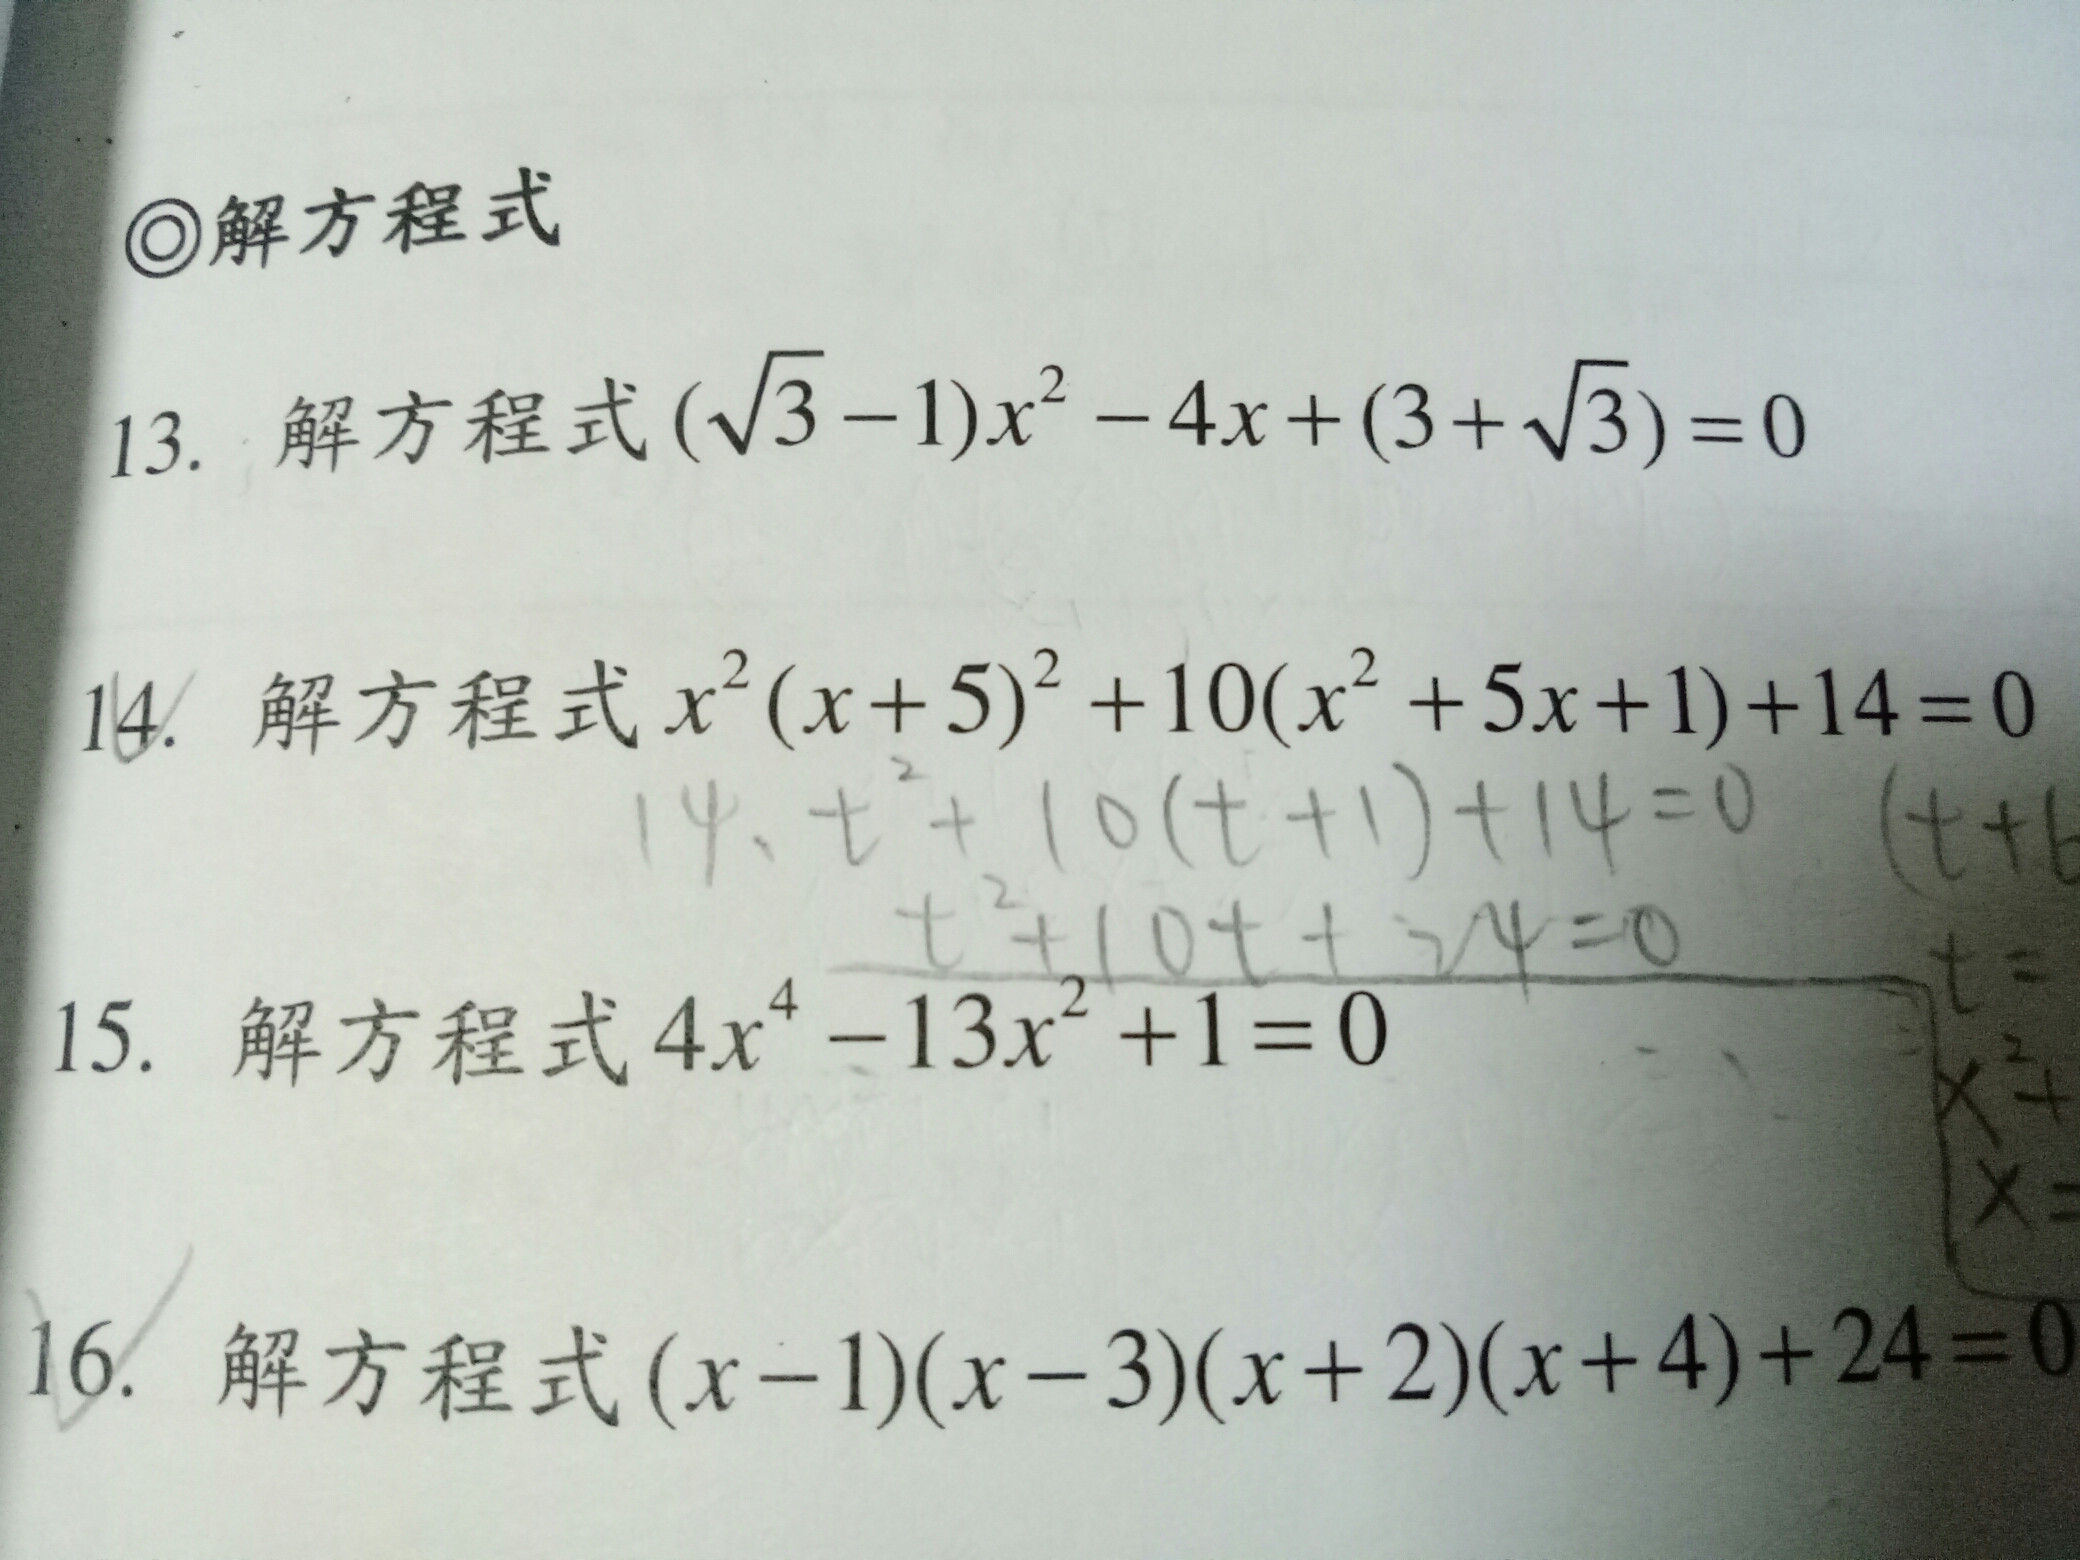 ◎解方程式
13. 解方程式(√3-1)x²-4x+(3+√3)=0
14. 解方程式x²(x+5)²+10(x²+5x+1)+14=0
14、t²+10(t+1)+14=0 (t+6
t²+10t+24=0
t=
15. 解方程式4x⁴-13x²+1=0
x²+
x=
16. 解方程式(x-1)(x-3)(x+2)(x+4)+24=0